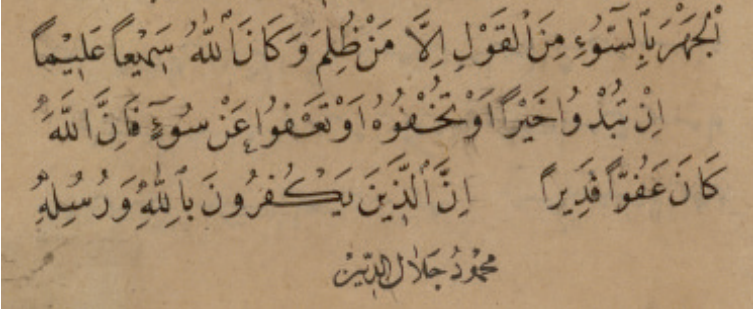 ٱلْجَهْرَ بِٱلسُّوٓءِ مِنَ ٱلْقَوْلِ اِلَّا مَنْ ظُلِمَ وَكَانَ ٱللّٰهُ سَمٖيعاً عَلٖيماً
اِنْ تُبْدُوا خَيْراً اَوْ تُخْفُوهُ اَوْ تَعْفُوا عَنْ سُوٓءٍ فَاِنَّ اللّٰهَ
كَانَ عَفُوّاً قَدٖيراً اِنَّ ٱلَّذٖينَ يَكْفُرُونَ بِٱللّٰهِ وَرُسُلِهٖ
محمود جلال الدين